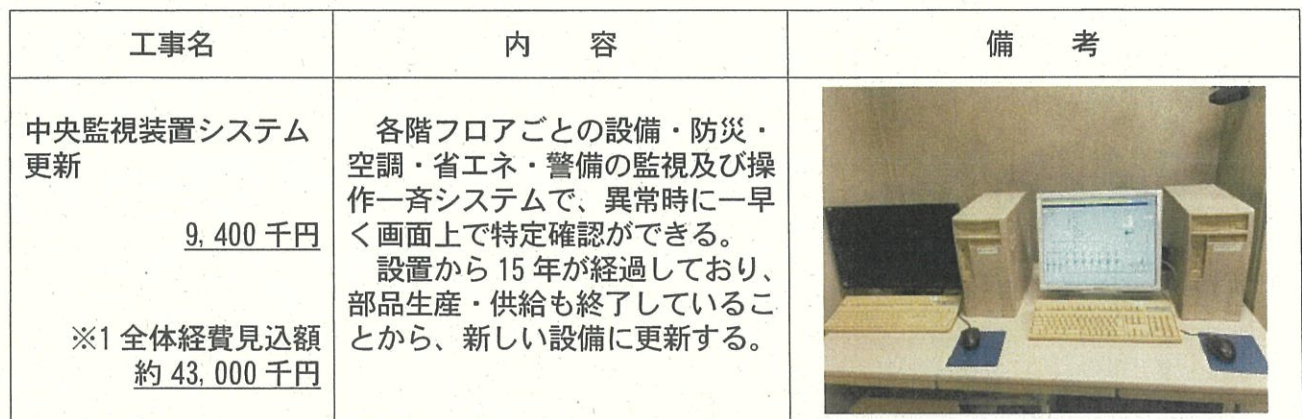 工事名
内　容
備　考
中央監視装置システム
更新
9,400 千円
※1 全体経費見込額
約 43,000 千円
　各階フロアごとの設備・防災・
空調・省エネ・警備の監視及び操
作一斉システムで、異常時に一早
く画面上で特定確認ができる。
　設置から 15 年が経過しており、
部品生産・供給も終了しているこ
とから、新しい設備に更新する。